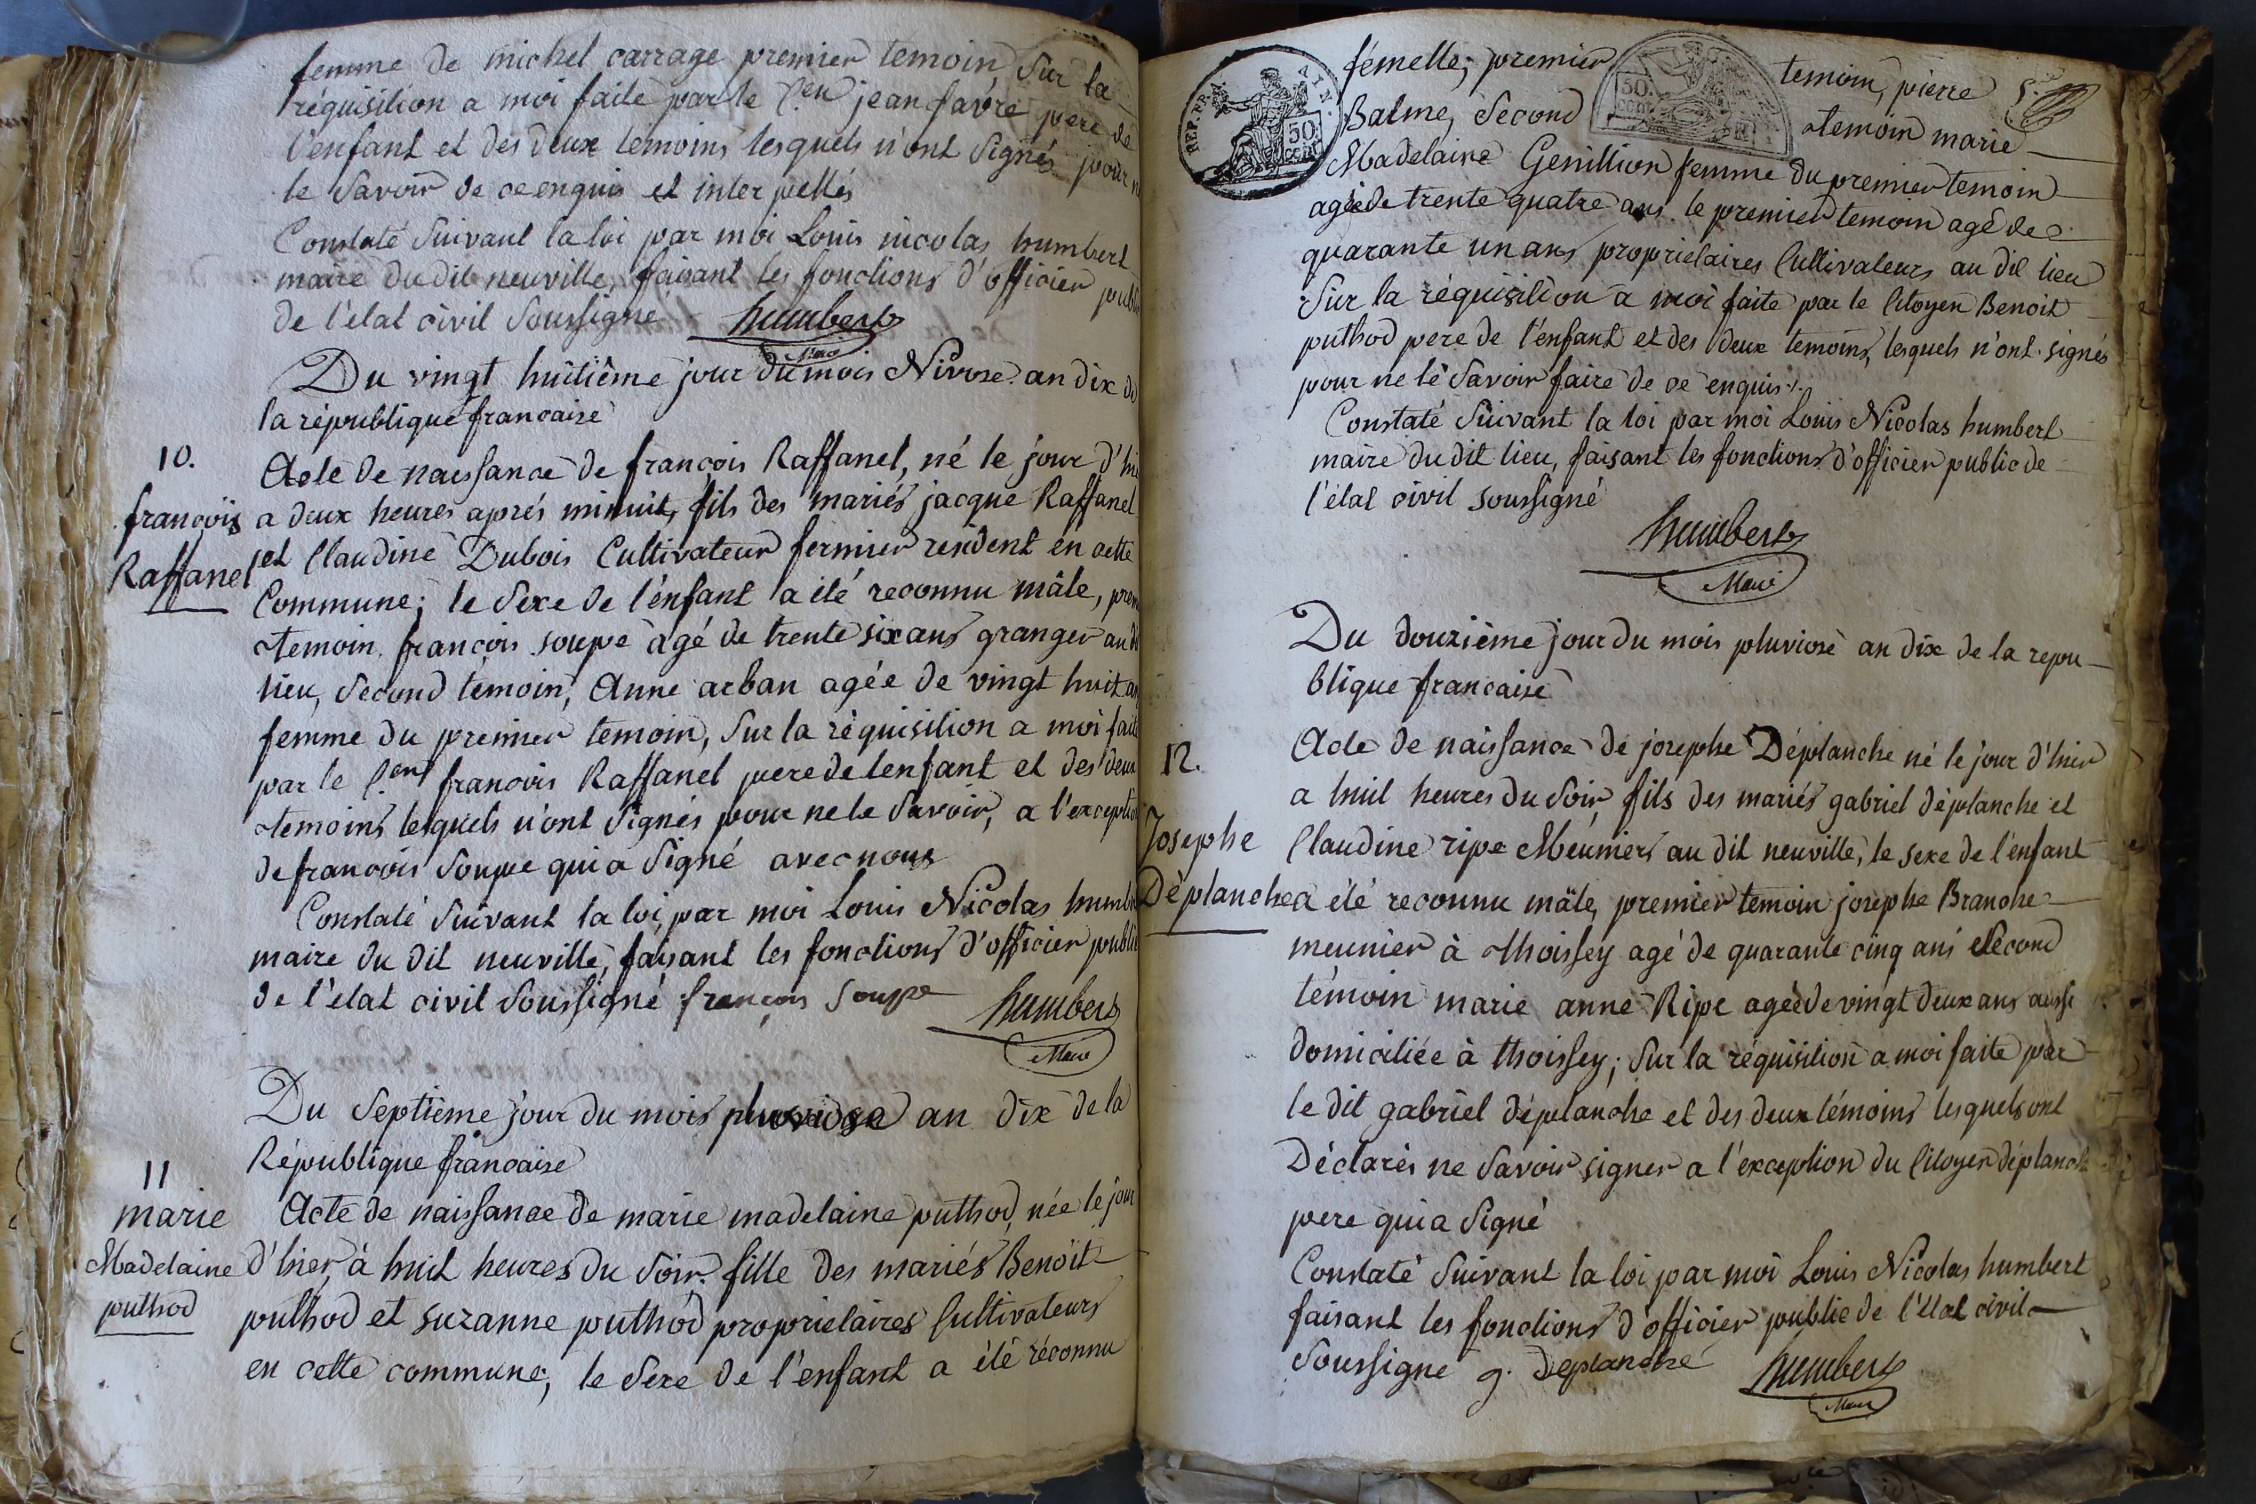 femme de michel carrage premier temoin, Sur la
réquisition a moi faite par le C.en jean favre pere de
l'enfant et des deux temoins lesquels n'ont Signés pour n
le Savoir de ce enquis et interpellés
Constaté Suivant la loi par moi Louis nicolas humbert
maire du dit neuville, faisant les fonctions d'officier public
de l'état civil Soussigné humbert
Maire
Du vingt huitième jour du mois Nivose an dix de
la république francaise
10.
françois
Raffanel
Acte de naissance de françois Raffanel, né le jour d'hie
a deux heures aprés minuit, fils des mariés jacque Raffanel
et Claudine Dubois Cultivateur fermier resident en cette
Commune; le Sexe de l'énfant a été reconnu mâle, prem
temoin françois soupe agé de trente six ans granger au d
lieu, Second temoin, Anne arban agée de vingt huit an
femme du premier temoin, Sur la réquisition a moi faite
par le C.en françois Raffanel pere de lenfant et des deux
temoins lesquels n'ont Signés pour ne le Savoir, a l'exception
de françois Soupe qui a Signé avec nous
Constaté Suivant la loi, par moi Louis Nicolas humbe
maire du dit neuville, faisant les fonctions d'officier public
de l'état civil Soussigné françois Soupe humbert
Maire
Du Septième jour du mois pluviose an dix de la
République francaise
11
marie
Madelaine
puthod
Acte de naissance de marie madelaine puthod, née le jour
d'hier, à huit heures du Soir, fille des mariés Benoït
puthod et suzanne puthod proprietaires Cultivateurs
en cette commune, le Sexe de l'enfant a été réconnu
REP. FRA.
50
CENT
50.
CENT
5.e
fémelle; premier temoin, pierre
Balme, Second temoin marie
Madelaine Genillion femme du premier temoin
agée de trente quatre ans. le premier temoin agé de
quarante un ans proprietaires Cultivateurs au dit lieu
Sur la réquisition a moi faite par le Citoyen Benoit
puthod pere de l'enfant et des deux temoins, lesquels n'ont signés
pour ne lé Savoir faire de ce enquis./.
Constaté Suivant la loi par moi Louis Nicolas humbert
maire du dit lieu, faisant les fonctions d'officier public de
l'état civil soussigné
humbert
Maire
Du douzième jour du mois pluviose an dix de la repu-
blique francaise
12.
Josephe
Déplanche
Acte de naissance de josephe Déplanche né le jour d'hier
a huit heures du Soir, fils des mariés gabriel déplanche et
Claudine ripe Meuniers au dit neuville, le sexe de l'enfant
a été reconnu mâle, premier temoin josephe Branche
meunier à thoissey agé de quarante cinq ans Second
témoin marie anne Ripe agée de vingt deux ans aussi
domiciliée à thoissey; Sur la réquisition a moi faite par
le dit gabriel déplanche et des deux témoins lesquels ont
Déclarés ne Savoir signer a l'exception du Citoyen déplanche
pere qui a Signé
Constaté Suivant la loi par moi Louis Nicolas humbert
faisant les fonctions d'officier public de l'état civil
Soussigné g. Deplanche humbert
Maire